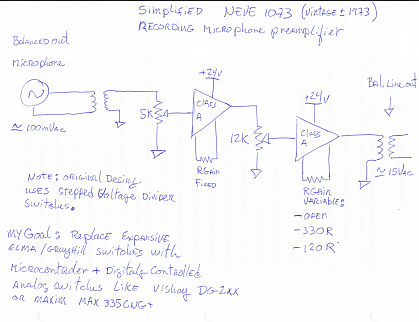 Simplified NEVE 1073 (VINTAGE ± 1973)
RECORDING Microphone preamplifier
Balanced out
Microphone
≈ 100mVac
5K
+24V
CLASS
A
RGAIN
FIXED
12K
+24V
CLASS
A
RGAIN
VARIABLE:
- OPEN
- 330R
- 120R
Bal. Line out
≈ 15VAC
NOTE: ORIGINAL Desing
USES Stepped Voltage Divider
Switches.
MY Goal: Replace Expansive
ELMA/GRAYHILL switches with
Microcontroder + Digitaly Controlled
Analog switches Like Vishay DG-2XX
OR MAXIM MAX335CNG+